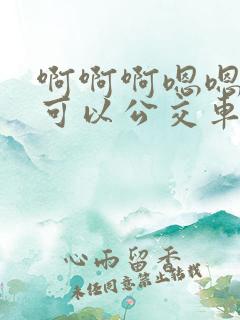 啊啊啊嗯嗯
可以公交车
心雨留香
未经同意禁止转载